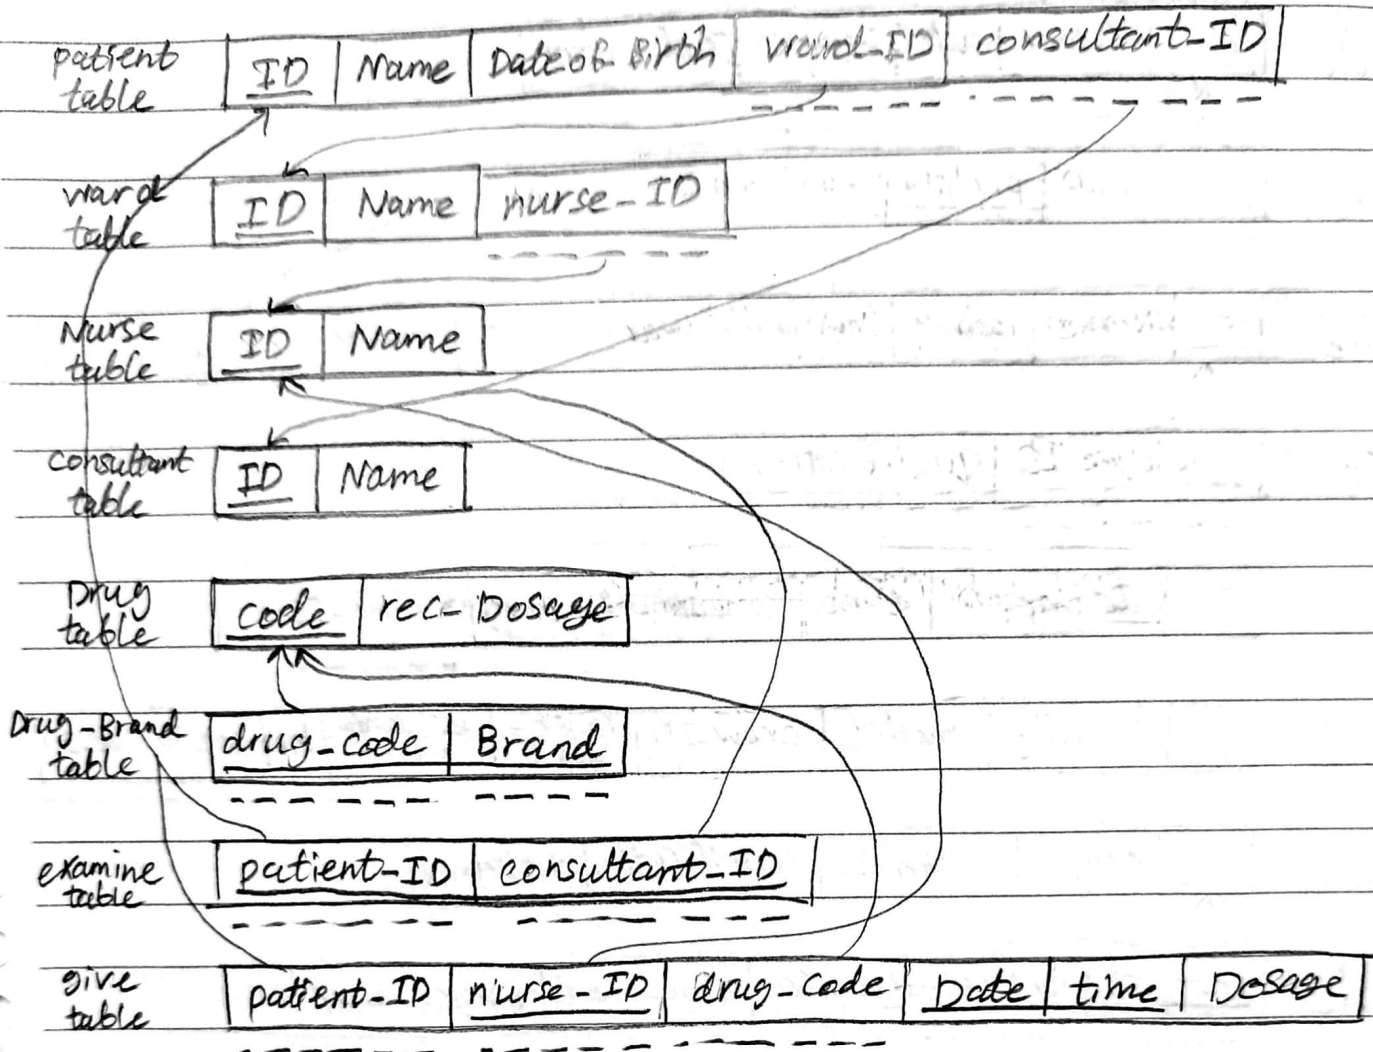 patient table ID Name Date of Birth ward_ID consultant_ID
ward table ID Name nurse_ID
Nurse table ID Name
consultant table ID Name
Drug table code rec-Dosage
Drug-Brand table drug_code Brand
examine table patient_ID consultant_ID
give table patient_ID nurse_ID drug_code Date time Dosage